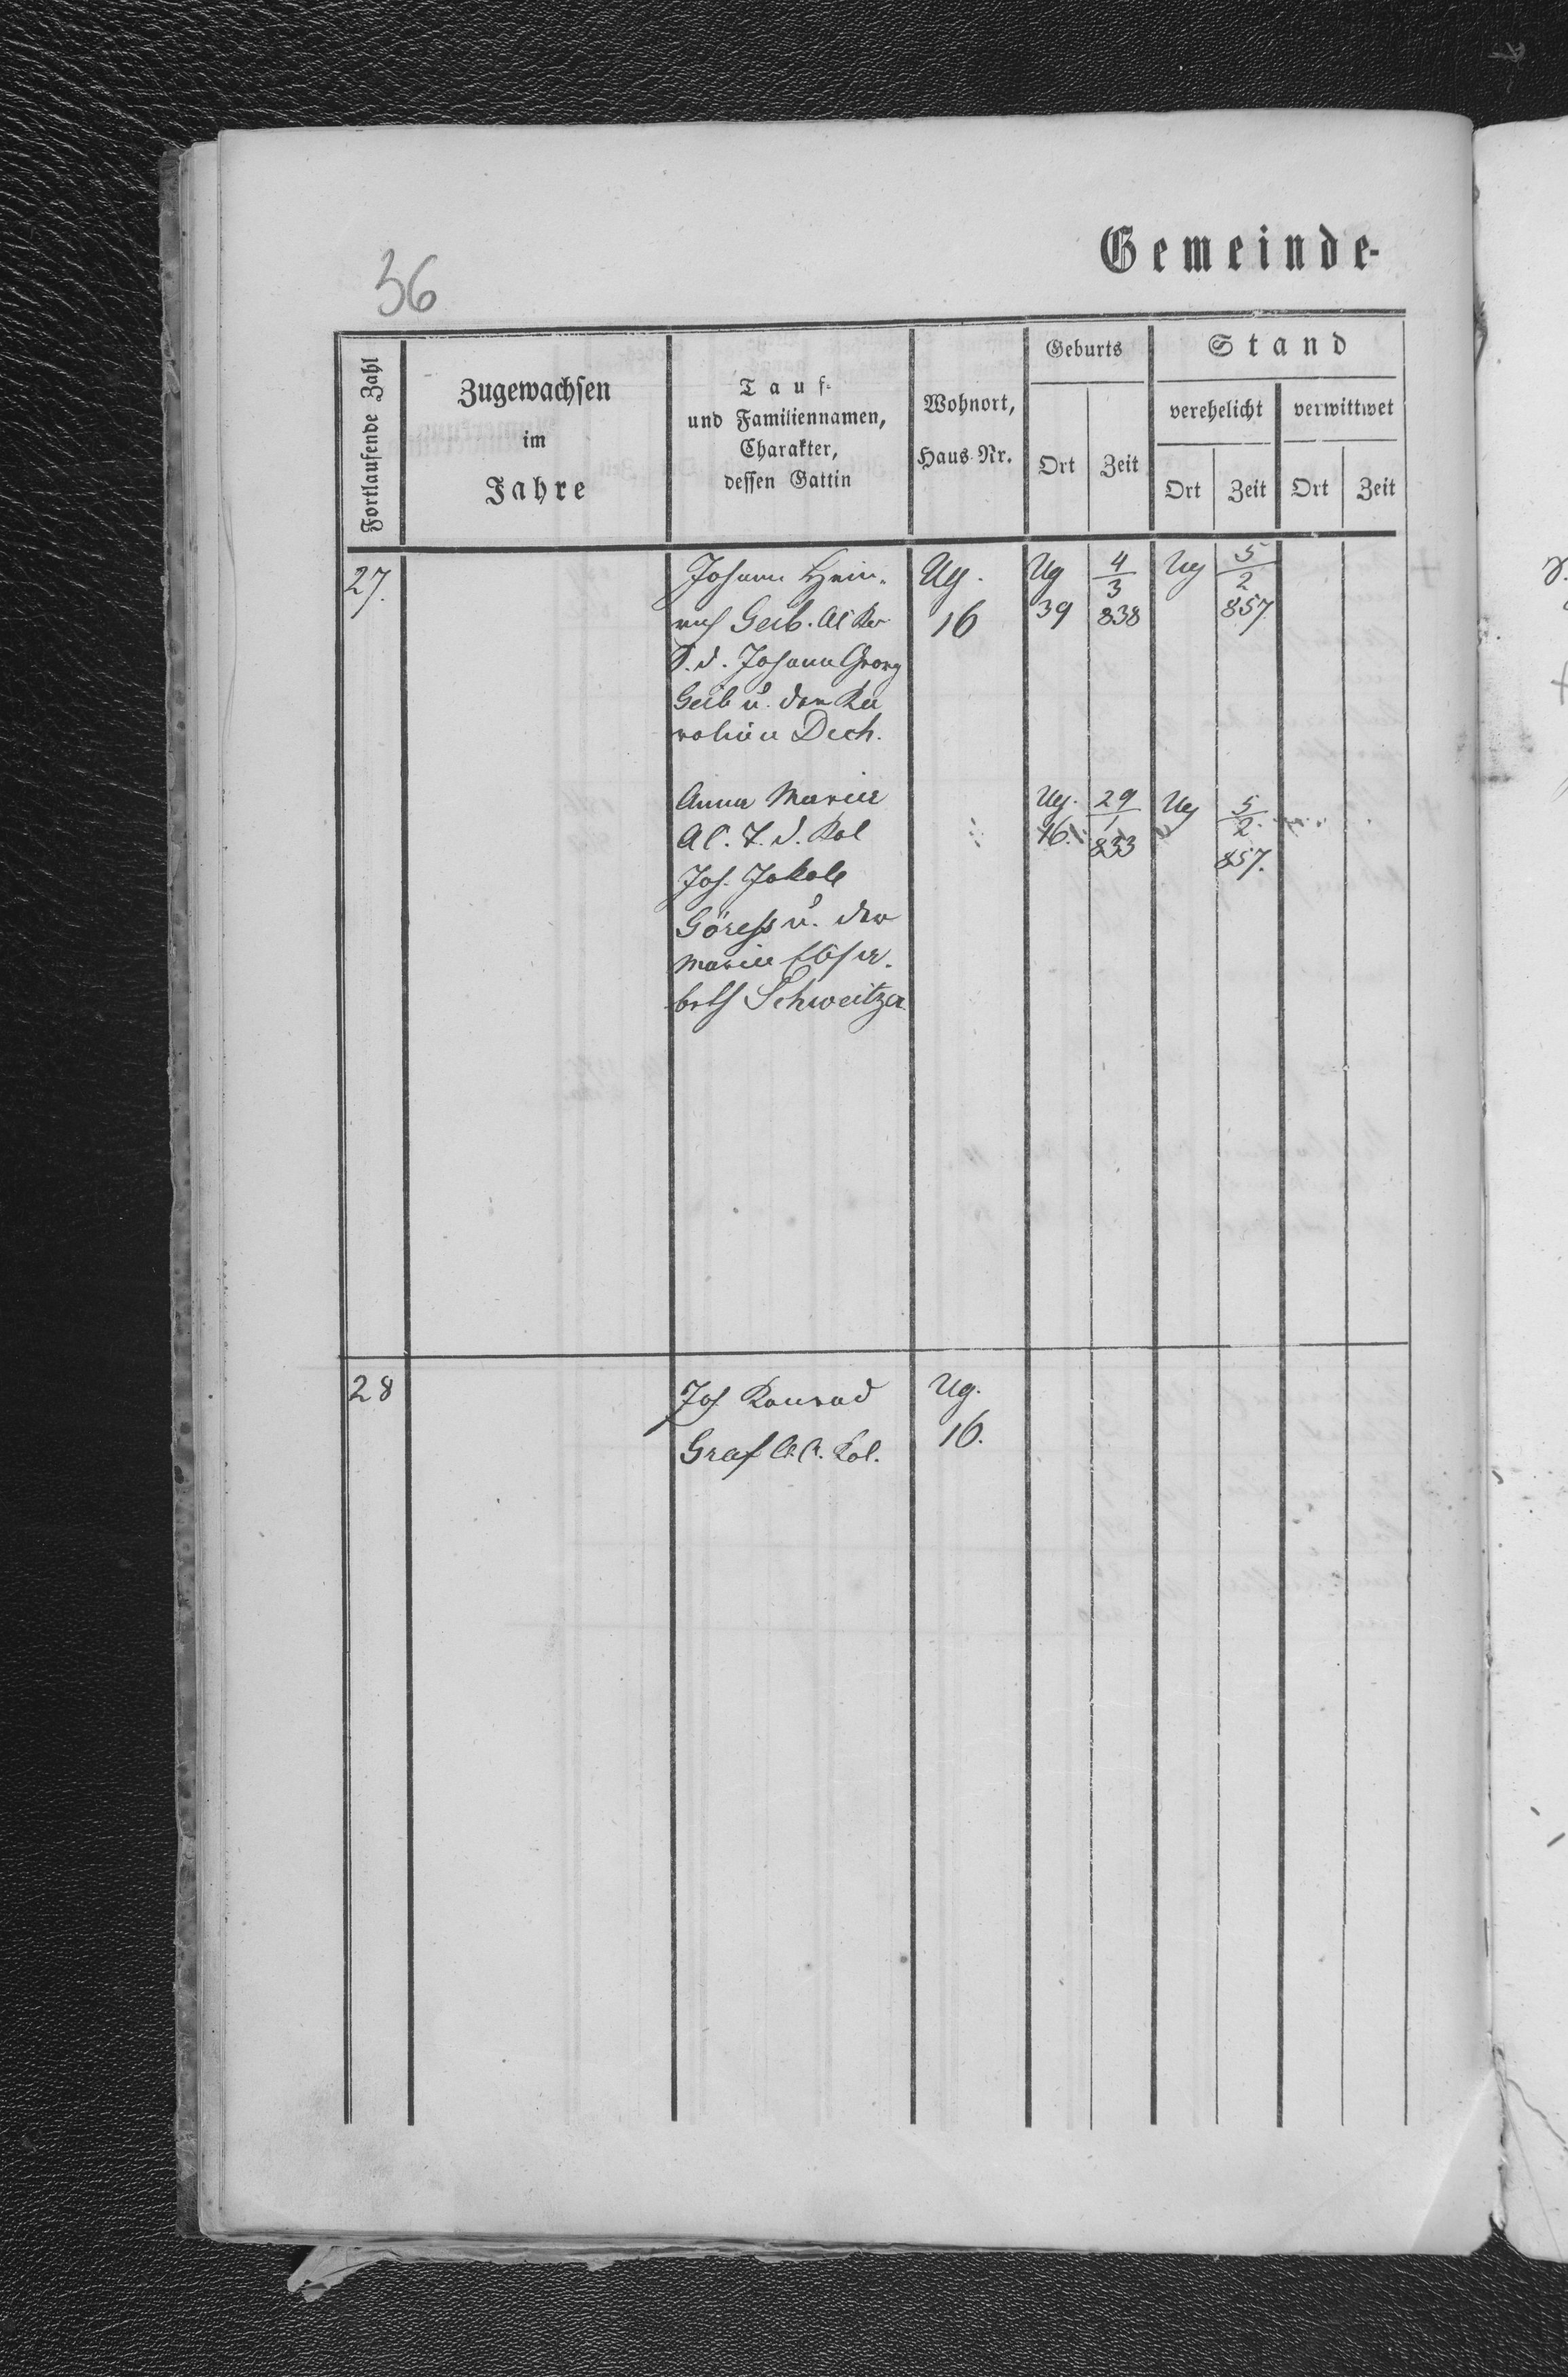 36
Gemeinde-
Fortlaufende Zahl
Zugewachsen
im
Jahre
Tauf-
und Familiennamen,
Charakter,
dessen Gattin
Wohnort,
Haus-Nr.
Geburts
Ort
Zeit
Stand
verehelicht
Ort
Zeit
verwittwet
Ort
Zeit
27.
Johann Hein-
rich Geib. AC
S. d. Johann Georg
Geib u. der Ka
roline Dech.
Ug.
16
Ug
39
4
3
838
Ug
5
2
857
Anna Marie
AC. T. d. Kol
Joh. Jakob
Göress u. der
Marie Elisa-
beth Schweitzer
Ug.
16.
29
1
833
Ug
5
2
857.
28
Joh Konrad
Graf A.C. Kol.
Ug.
16.